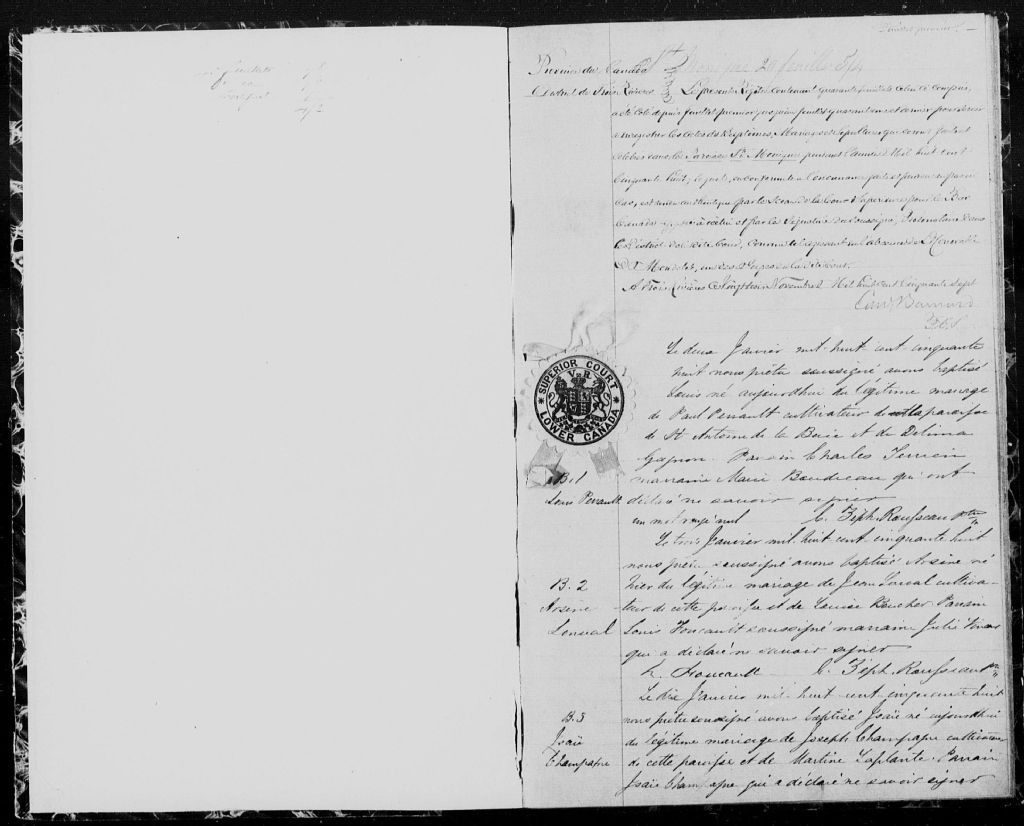 Feuillet premier.
Province du Canada
District de Trois Rivières Le present Régitre contenant quarante feuillets celui ci compris,
a été coté depuis feuillet premier jusqu'au feuillet quarante et dernier pour servir
a enregistrer les Actes de Baptêmes, Mariages et Sepultures qui seront faits et
célébrés dans la Paroisse St Monique pendant l'année Mil huit cent
cinquante huit, lequel, en conformité a l'ordonnance faite et pourvue en pareil
cas, est rendu authentique par le Sceau de la Cour Superieure pour le Bas
Canada apposé à icelui et par la Signature du soussigné, Protonotaire dans
le District de la dite Cour, comme le requerant en l'absence de L'Honorable
D. Mondelet, un des Juges de la dite Cour.
A Trois Rivières ce Vingt trois Novembre Mil huit cent cinquante sept
Edw. Barnard
P.C.S.
SUPERIOR COURT
V R
LOWER CANADA
Le deux Janvier mil-huit-cent-cinquante
huit nous prêtre soussigné avons baptisé
Louis né aujourdhui du légitime mariage
de Paul Perrault cultivateur de la paroisse
de St Antoine de la Baie et de Delima
Gagnon. Parrain Charles Terrien
B. 1 marraine Marie Boudreau qui ont
Louis Perrault déclaré ne savoir signer
un mot rayé nul C. Zéph. Rousseau Ptre
Le trois Janvier mil-huit cent cinquante huit
nous prêtre soussigné avons baptisé Arsène né
B. 2 hier du légitime mariage de Jean Lonval cultiva-
Arsene teur de cette paroisse et de Louise Boucher Parrain
Lonval Louis Foucault soussigné marraine Julie
qui a déclaré ne savoir signer
L. Foucault C. Zéph. Rousseau Ptre
Le dix Janvier mil-huit-cent-cinquante huit
B. 3 nous prêtre soussigné avons baptisé Isaïe né aujourdhui
Isaïe du légitime mariage de Joseph Champagne cultivateur
Champagne de cette paroisse et de Martine Laplante. Parrain
Isaïe Champagne qui a déclaré ne savoir signer